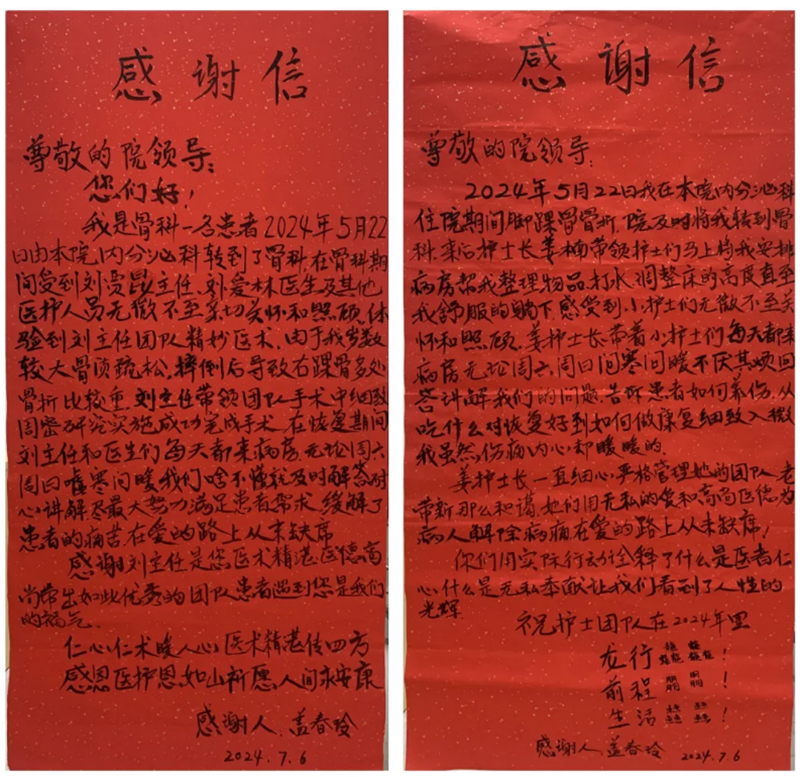 感谢信
尊敬的院领导：
您们好！
我是骨科一名患者2024年5月22
日由本院内分泌科转到了骨科，在骨科期
间受到刘贵昆主任、刘爱林医生及其他
医护人员无微不至亲切关怀和照顾，体
验到刘主任团队精妙医术，由于我岁数
较大骨质疏松，摔倒后导致右踝骨多处
骨折比较重，刘主任带领团队手术中细致
周密研究实施成功完成手术，在恢复期间
刘主任和医生们每天都来病房无论周六
周日嘘寒问暖我们啥不懂就及时解答耐
心讲解尽最大努力满足患者需求，缓解了
患者的病苦在爱的路上从未缺席
感谢刘主任是您医术精湛医德高
尚带出如此优秀的团队患者遇到您是我们
的福气。
仁心仁术暖人心，医术精湛传四方
感恩医护恩如山祈愿人间永安康
感谢人：盖春玲
2024.7.6
感谢信
尊敬的院领导：
2024年5月22日我在本院内分泌科
住院期间脚踝骨骨折，院及时将我转到骨
科，来后护士长姜楠带领护士们马上将我安排
病房帮我整理物品打水，调整床的高度直至
我舒服的躺下感受到小护士们无微不至关
怀和照顾，姜护士长带着小护士们每天都来
病房无论周六周日问寒问暖不厌其烦回
答讲解我们的问题，告诉患者如何养伤，从
吃什么对恢复好到如何做康复细致入微
我虽然伤病内心却暖暖的。
姜护士长一直细心严格管理她的团队老
带新那么和谐，她们用无私的爱和高尚医德为
病人解除病痛在爱的路上从未缺席！
你们用实际行动诠释了什么是医者仁
心，什么是无私奉献让我们看到了人性的
光辉
祝护士团队在2024年里
龙行龘龘！
前程朤朤！
生活䲜䲜！
感谢人：盖春玲 2024.7.6